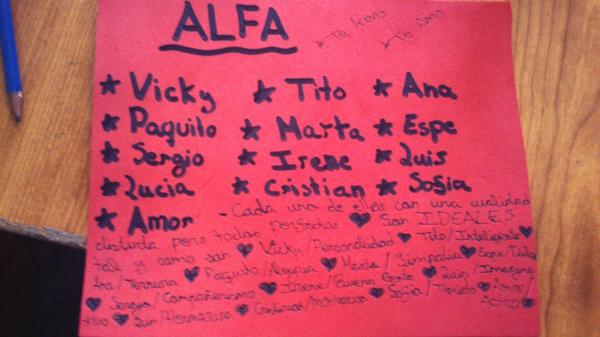 ALFA
* Te kiero
* Te Amo
* Vicky * Tito * Ana
* Paquito * Marta * Espe
* Sergio * Irene * Luis
* Lucia * Cristian * Sofia
* Amor - Cada uno de ellos con una cualidad
distinta pero todas perfectas ♥ Son IDEALES
tal y como son ♥ Vicky/Personalidad ♥ Tito/Inteligente ♥
Ana/Ternura ♥ Paquito/Alegria ♥ Marta/Simpatia ♥ Espe/
♥ Sergio/Compañerismo ♥ Irene/Buena Gente ♥
♥ ♥ Sofia/Timida ♥ Amor/